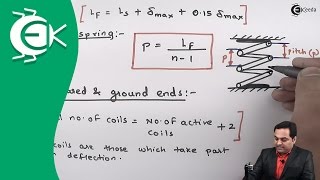 [ LF = Ls + δmax + 0.15 δmax ]
spring:-
P = LF / n-1
P
pitch (p)
& ground ends:-
no. of coils = no. of active coils + 2 ]
coils are those which take part
deflection.
Ekeeda